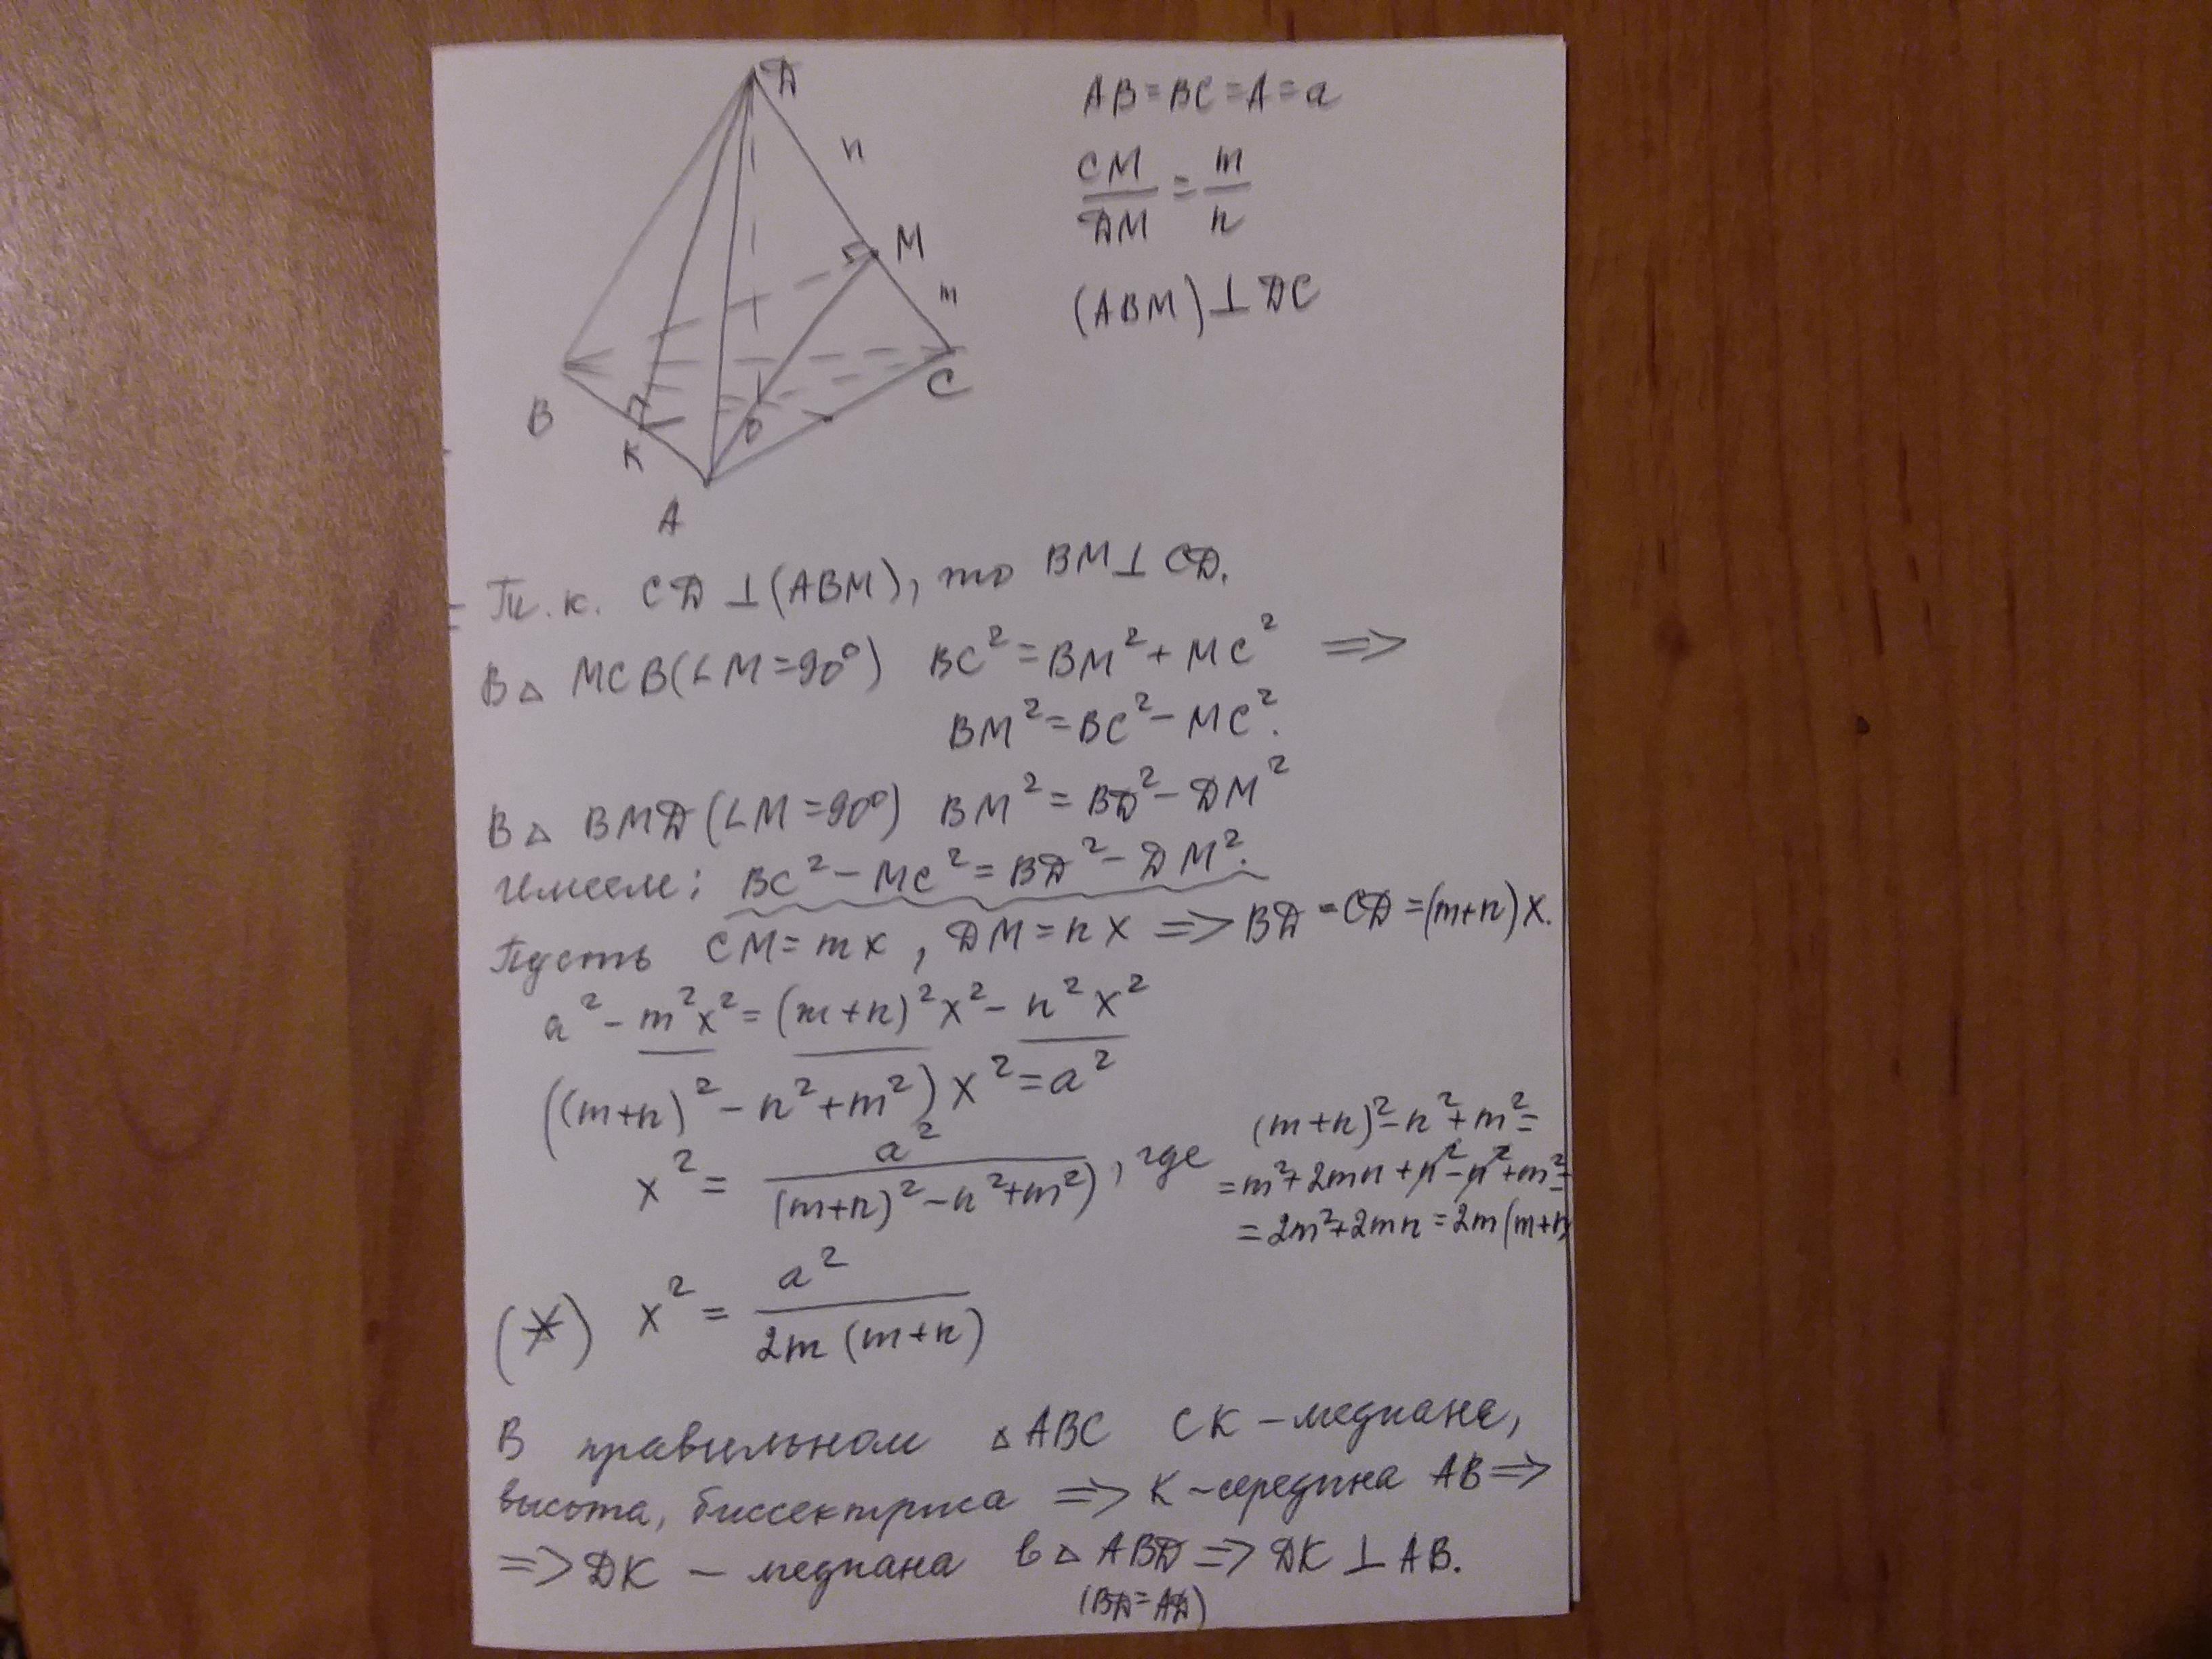 Д
n
M
m
B
K
O
C
A
AB=BC=A=a
CM/ДM = m/n
(ABM)⊥ДC
Т.к. CД⊥(ABM), то BM⊥CД.
В△ MCB(∠M=90°) BC²=BM²+MC² =>
BM²=BC²-MC².
В△ BMД(∠M=90°) BM²=BД²-ДM²
Имеем: BC²-MC²=BД²-ДM².
Пусть CM=mx, ДM=nx => BД=CД=(m+n)x.
a²-m²x²=(m+n)²x²-n²x²
((m+n)²-n²+m²)x²=a²
x²= a²/((m+n)²-n²+m²), где
(m+n)²-n²+m²=
=m²+2mn+n²-n²+m²=
=2m²+2mn=2m(m+n
(*) x²= a²/2m(m+n)
В правильном △ABC CK-медиана,
высота, биссектриса => K-середина AB=>
=>ДK - медиана в△ ABД=> ДK⊥AB.
(BД=AД)